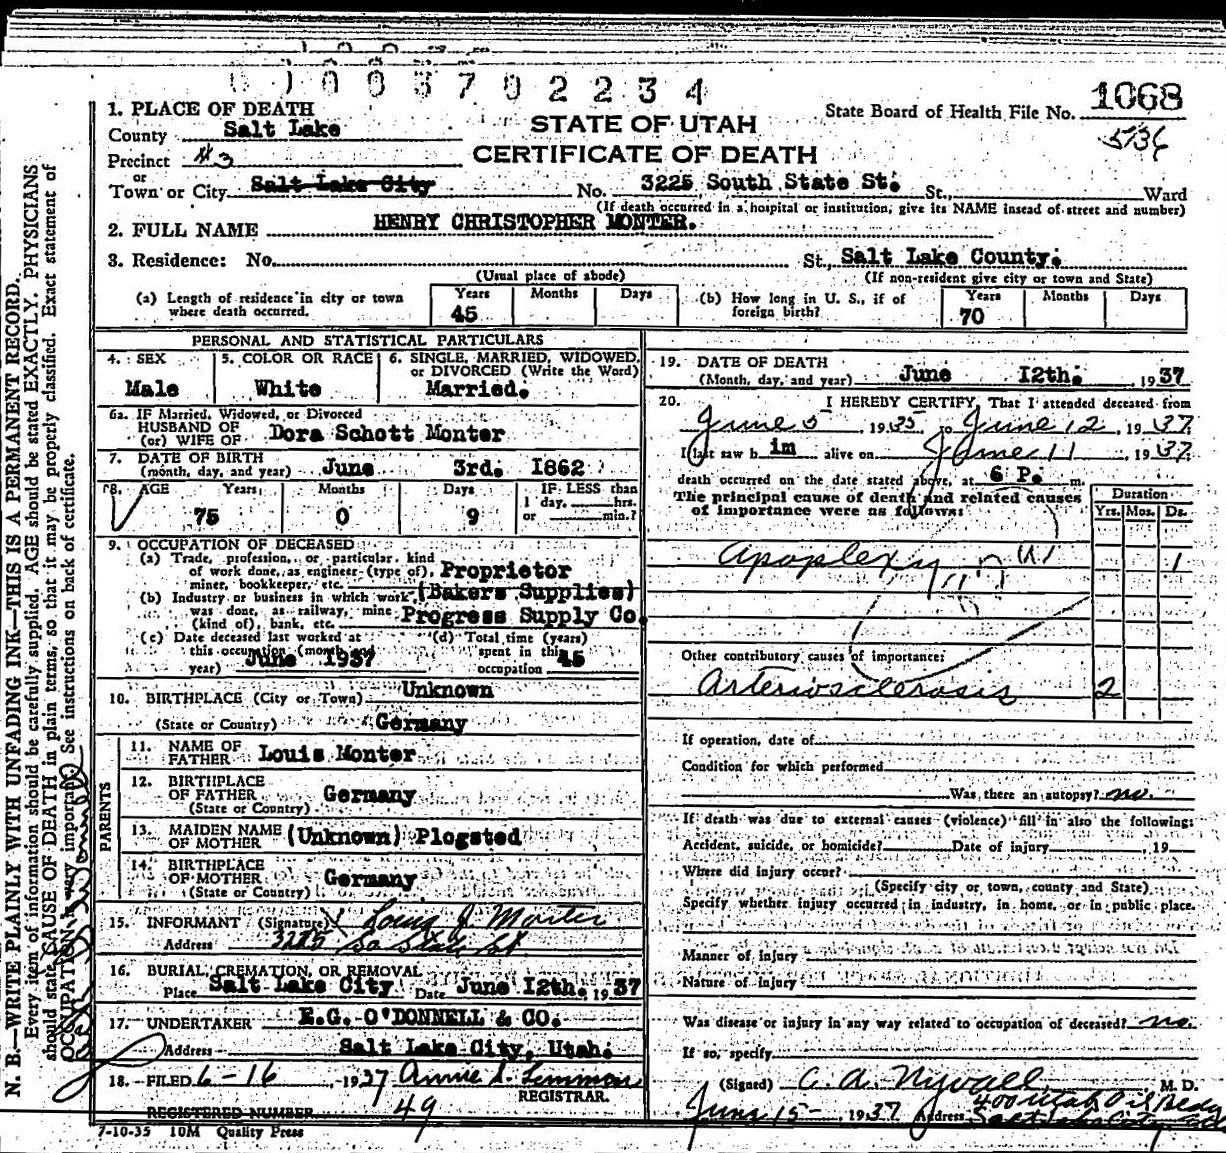 0 1 0 0 3 7 0 2 2 3 4
1. PLACE OF DEATH
County Salt Lake
Precinct #3
or
Town or City Salt Lake City No. 3225 South State St. St., Ward
STATE OF UTAH
CERTIFICATE OF DEATH
State Board of Health File No. 1068
5736
(If death occurred in a hospital or institution, give its NAME insead of street and number)
2. FULL NAME HENRY CHRISTOPHER MONTER.
3. Residence: No. St., Salt Lake County.
(Usual place of abode) (If non-resident give city or town and State)
(a) Length of residence in city or town where death occurred. Years 45 Months Days
(b) How long in U. S., if of foreign birth? Years 70 Months Days
PERSONAL AND STATISTICAL PARTICULARS
4. SEX Male
5. COLOR OR RACE White
6. SINGLE, MARRIED, WIDOWED, or DIVORCED (Write the Word) Married.
6a. IF Married, Widowed, or Divorced
HUSBAND OF
(or) WIFE OF Dora Schott Monter
7. DATE OF BIRTH
(month, day, and year) June 3rd. 1862
8. AGE Years 75 Months 0 Days 9 IF LESS than
1 day, hrs.
or min.?
9. OCCUPATION OF DECEASED
(a) Trade, profession, or particular kind
of work done, as engineer (type of), Proprietor
miner, bookkeeper, etc.
(b) Industry or business in which work (Bakers Supplies)
was done, as railway, mine Progress Supply Co.
(kind of), bank, etc.
(c) Date deceased last worked at
this occupation (month and
year) June 1937
(d) Total time (years)
spent in this
occupation 45
10. BIRTHPLACE (City or Town) Unknown
(State or Country) Germany
PARENTS
11. NAME OF
FATHER Louis Monter
12. BIRTHPLACE
OF FATHER Germany
(State or Country)
13. MAIDEN NAME
OF MOTHER (Unknown) Plogsted
14. BIRTHPLACE
OF MOTHER Germany
(State or Country)
15. INFORMANT (Signature) Louis J. Monter
Address 3225 So State St
16. BURIAL, CREMATION, OR REMOVAL
Place Salt Lake City Date June 12th. 1937
17. UNDERTAKER E.G. O'DONNELL & CO.
Address Salt Lake City, Utah.
18. FILED 6-16, 1937 Annie S. Timmons
REGISTRAR.
REGISTERED NUMBER 49
7-10-35 10M Quality Press
19. DATE OF DEATH
(Month, day, and year) June 12th. , 1937
20. I HEREBY CERTIFY, That I attended deceased from
June 5, 1935 to June 12, 1937
I last saw him alive on June 11, 1937
death occurred on the date stated above, at 6 P. m.
The principal cause of death and related causes
of importance were as follows:
Duration
Yrs. Mos. Ds.
Apoplexy 1
Other contributory causes of importance:
Arteriosclerosis 2
If operation, date of
Condition for which performed
Was there an autopsy? no.
If death was due to external causes (violence) fill in also the following:
Accident, suicide, or homicide? Date of injury , 19
Where did injury occur?
(Specify city or town, county and State)
Specify whether injury occurred in industry, in home, or in public place.
Manner of injury
Nature of injury
Was disease or injury in any way related to occupation of deceased? no.
If so, specify
(Signed) C. A. Nyvall, M. D.
June 15 - 1937 Address 400 Utah Oil Bldg
Salt Lake City
N. B.—WRITE PLAINLY WITH UNFADING INK—THIS IS A PERMANENT RECORD.
Every item of information should be carefully supplied. AGE should be stated EXACTLY. PHYSICIANS
should state CAUSE OF DEATH in plain terms, so that it may be properly classified. Exact statement of
OCCUPATION is very important. See instructions on back of certificate.